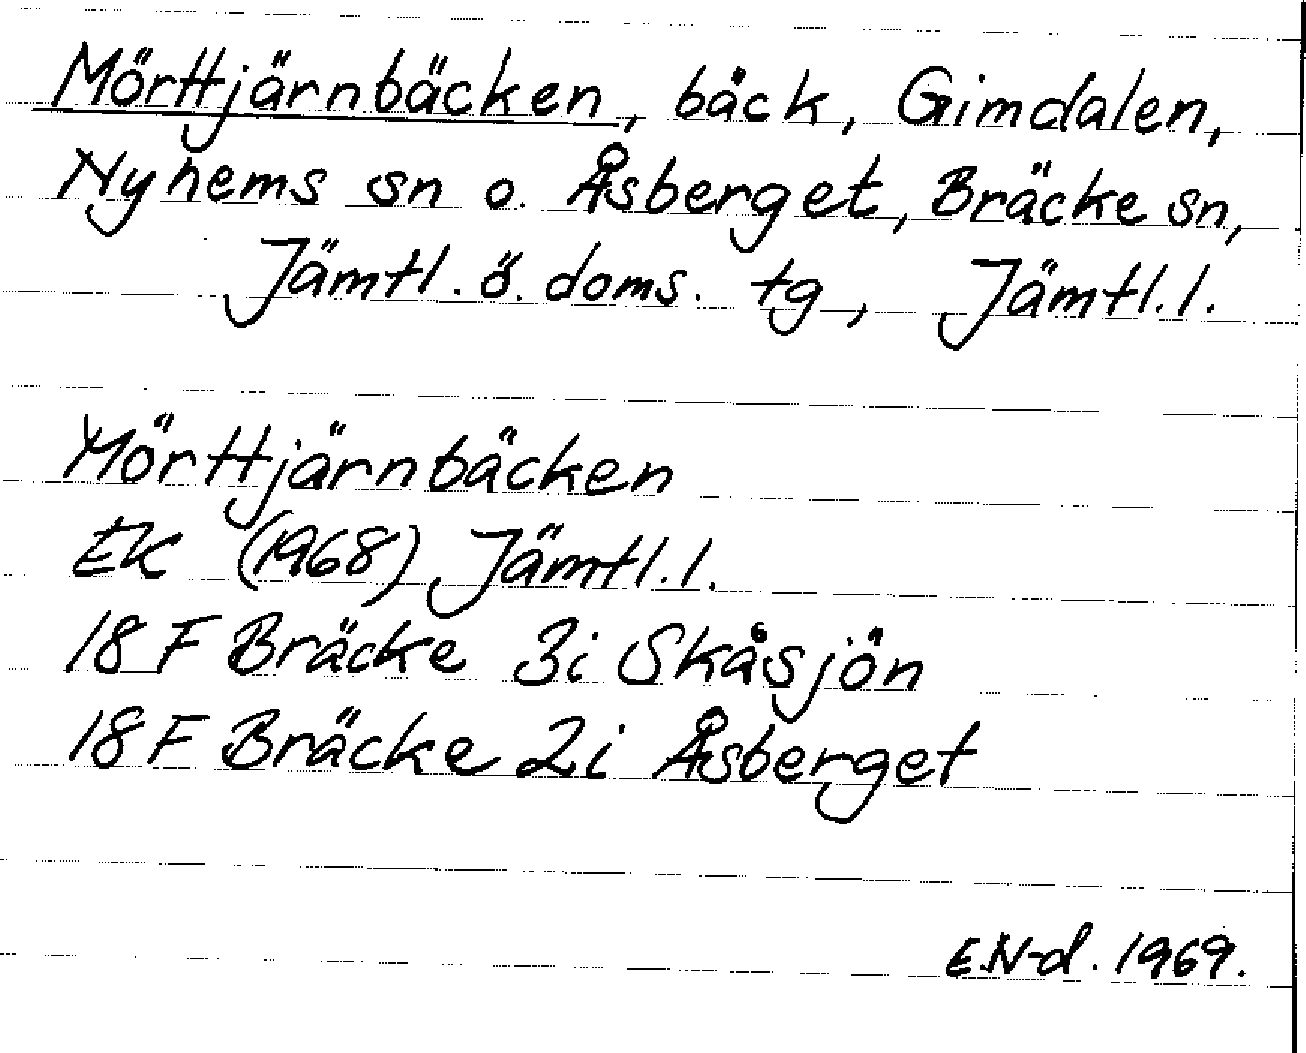 Mörttjärnbäcken, bäck, Gimdalen,
Nyhems sn o. Åsberget, Bräcke sn,
Jämtl. ö. doms. tg, Jämtl. l.
Mörttjärnbäcken
EK (1968) Jämtl. l.
18 F Bräcke 3i Skåsjön
18 F Bräcke 2i Åsberget
E.N-d. 1969.